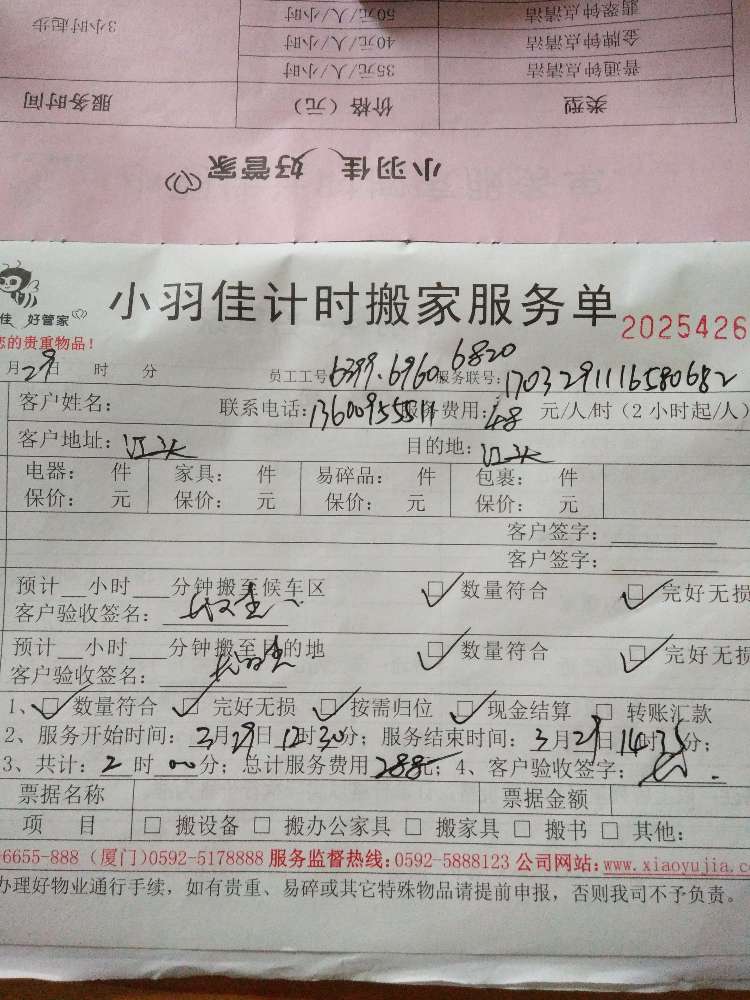 翡翠钟点清洁 50元/人/小时 3小时起步
金牌钟点清洁 40元/人/小时
普通钟点清洁 35元/人/小时
类型 价格（元） 服务时间
小羽佳 好管家
佳 好管家
小羽佳计时搬家服务单
2025426
您的贵重物品！
月29日 时 分 员工工号6399.6960 6820 服务联号：1703291116580682
客户姓名： 联系电话：13600955511 服务费用：48 元/人/时（2小时起/人）
客户地址： 目的地：
电器： 件 家具： 件 易碎品： 件 包裹： 件
保价： 元 保价： 元 保价： 元 保价： 元
客户签字：
客户签字：
预计__小时___分钟搬至候车区 □ 数量符合 □ 完好无损
客户验收签名：
预计__小时___分钟搬至目的地 □ 数量符合 □ 完好无损
客户验收签名：
1、□ 数量符合 □ 完好无损 □ 按需归位 □ 现金结算 □ 转账汇款
2、服务开始时间：3月29日12时30分；服务结束时间：3月29日14时35分；
3、共计：2时00分；总计服务费用288元；4、客户验收签字：
票据名称 票据金额
项 目 □ 搬设备 □ 搬办公家具 □ 搬家具 □ 搬书 □ 其他：
-6655-888（厦门)0592-5178888 服务监督热线:0592-5888123 公司网站:www.xiaoyujia.co
办理好物业通行手续，如有贵重、易碎或其它特殊物品请提前申报，否则我司不予负责。